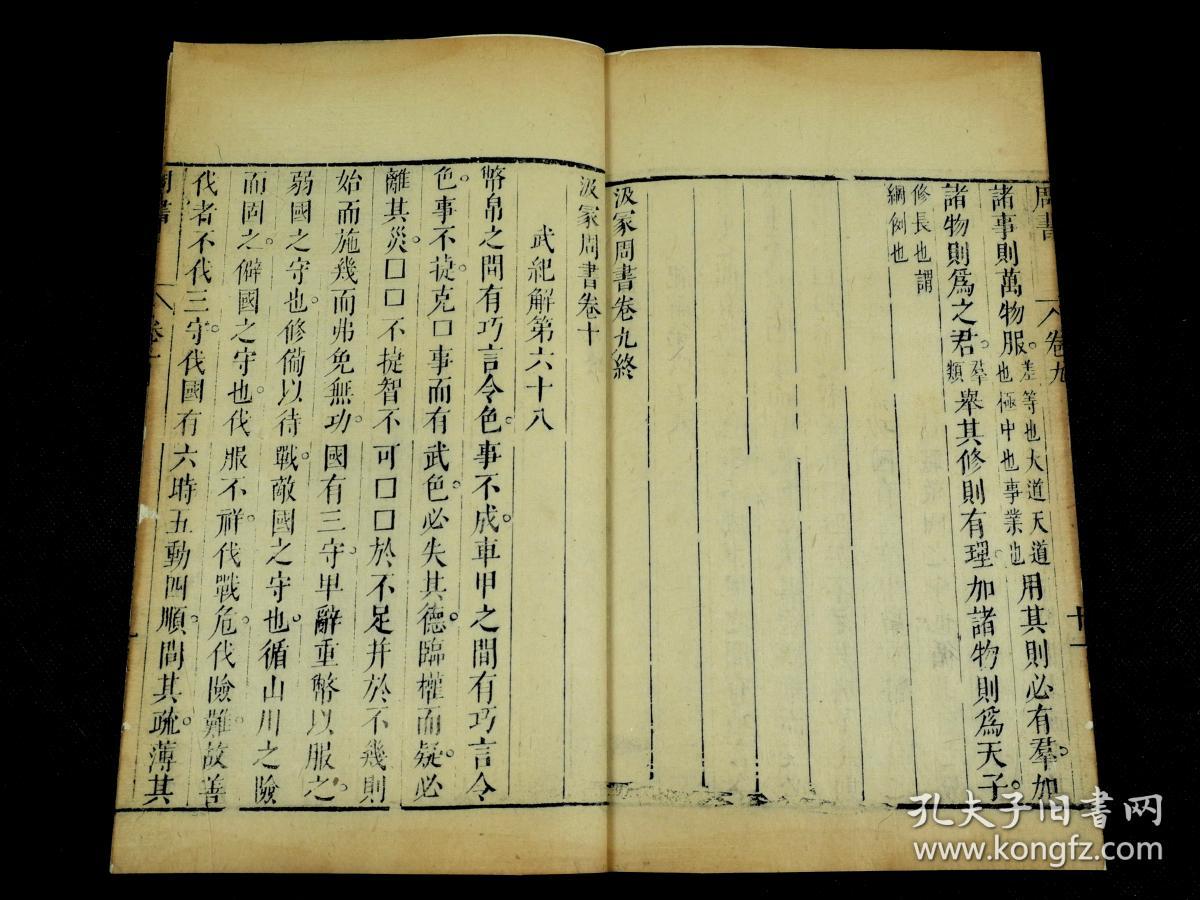 周書
卷九
十一
諸事則萬物服。差等也大道天道也極中也事業也用其則必有羣。加
諸物則爲之君。羣類舉其修則有理。加諸物則爲天子。
修長也謂
綱例也
汲冢周書卷九終
汲冢周書卷十
武紀解第六十八
幣帛之間有巧言令色。事不成。車甲之間有巧言令
色。事不㨗。克口事而有武色。必失其德。臨權而疑。必
離其災。口口不㨗智不可口口於不足并於不幾則
始而施幾而弗免無功。國有三守。卑辭重幣以服之。
弱國之守也。修備以待戰。敵國之守也。循山川之險
而固之。僻國之守也。伐服不祥。伐戰危。伐險難。故善
伐者不伐三守。伐國有六時五動四順。間其疏。薄其
周書
孔夫子旧书网
www.kongfz.com